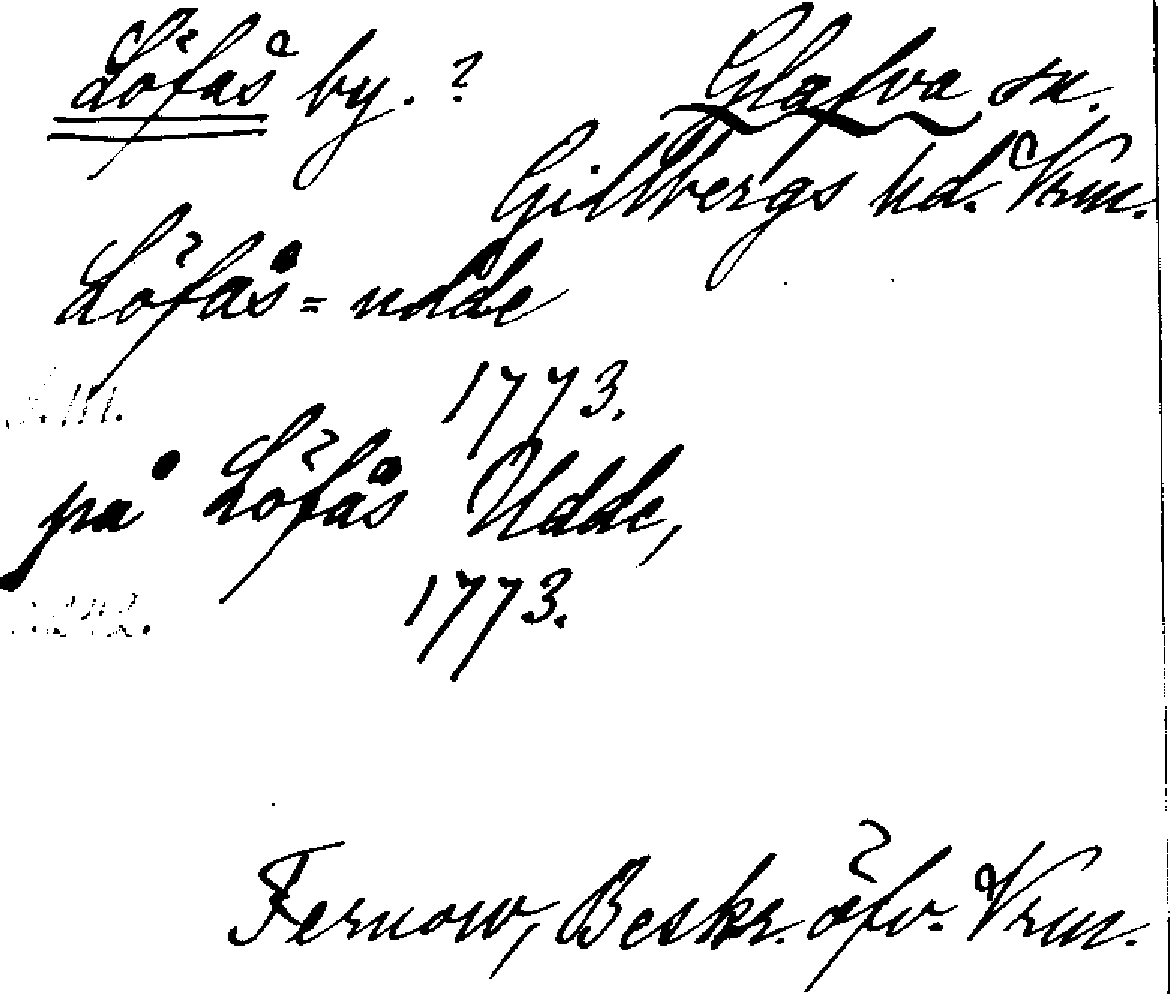 Löfås by. ?
Glafva sn.
Gillbergs hd. Vrm.
Löfås=udde
1773.
på Löfås Udde,
1773.
Fernow, Beskr. öfv. Vrm.